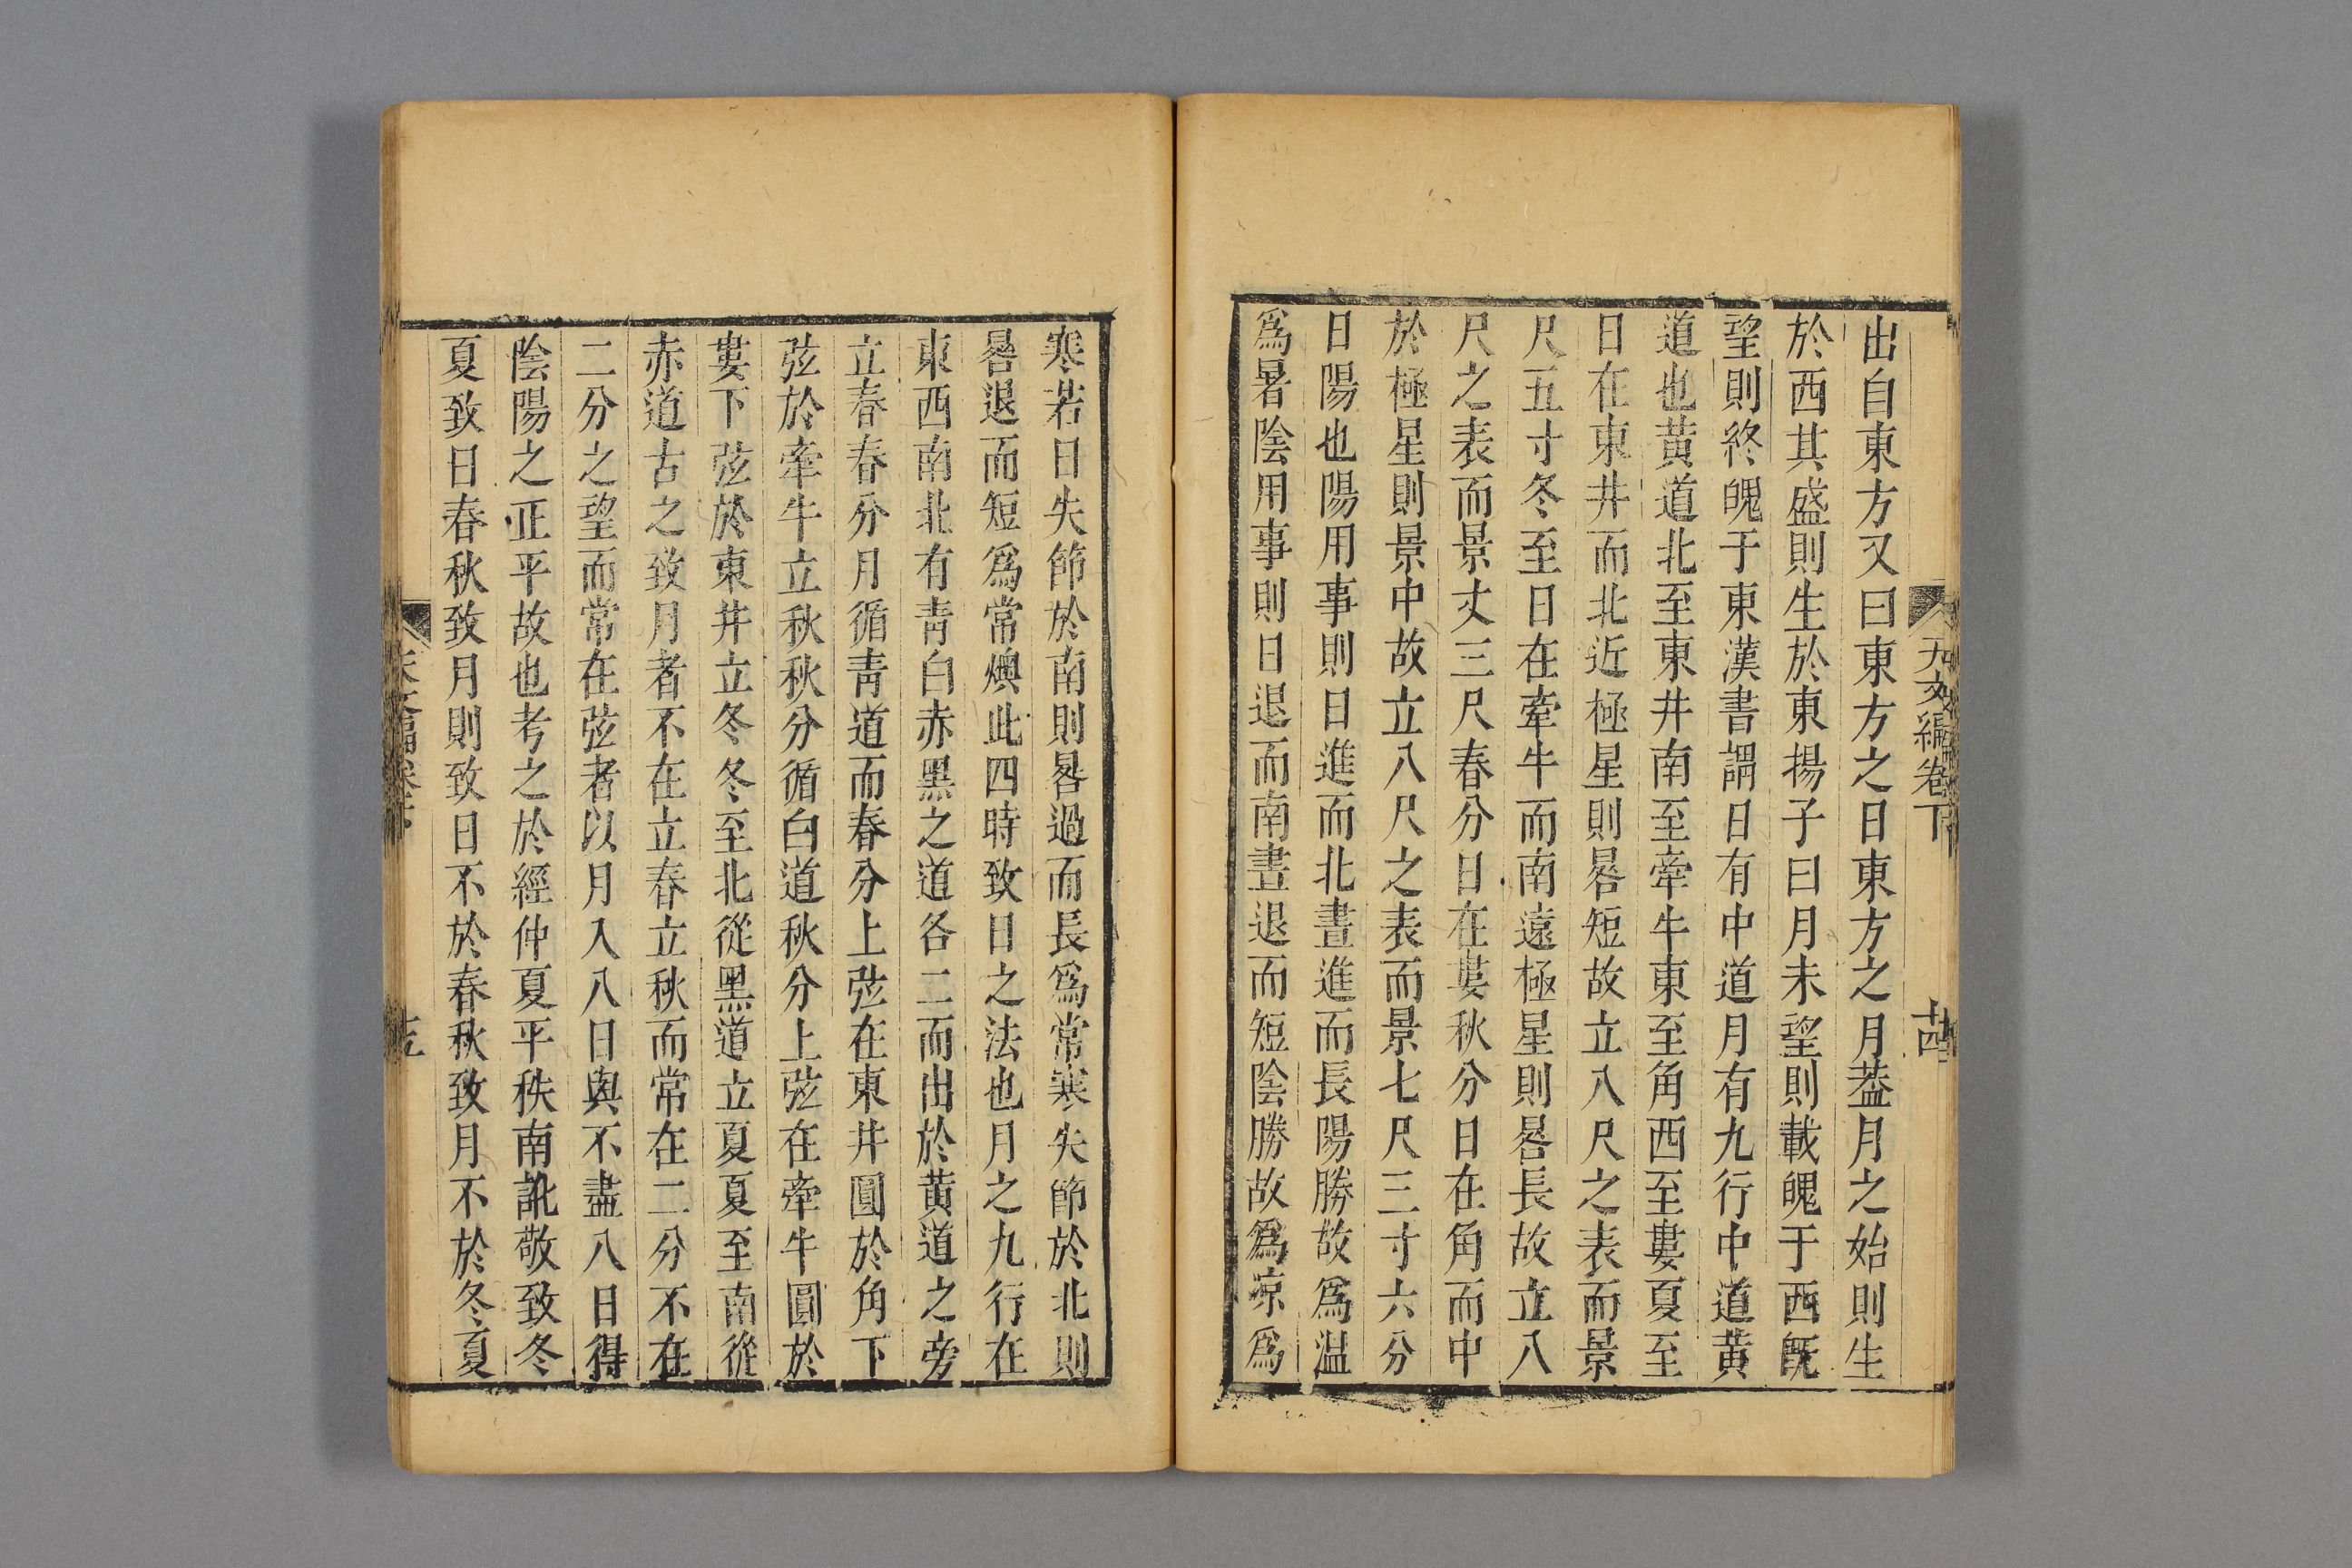 出自東方又曰東方之日東方之月葢月之始則生
於西其盛則生於東揚子曰月未望則載魄于西旣
望則終魄于東漢書謂日有中道月有九行中道黃
道也黃道北至東井南至牽牛東至角西至婁夏至
日在東井而北近極星則晷短故立八尺之表而景
尺五寸冬至日在牽牛而南遠極星則晷長故立八
尺之表而景丈三尺春分日在婁秋分日在角而中
於極星則景中故立八尺之表而景七尺三寸六分
日陽也陽用事則日進而北晝進而長陽勝故爲温
爲暑陰用事則日退而南晝退而短陰勝故爲凉爲
天文編卷下
寒若日失節於南則晷過而長爲常寒失節於北則
晷退而短爲常燠此四時致日之法也月之九行在
東西南北有青白赤黑之道各二而出於黃道之旁
立春春分月循青道而春分上弦在東井圓於角下
弦於牽牛立秋秋分循白道秋分上弦在牽牛圓於
婁下弦於東井立冬冬至北從黑道立夏夏至南從
赤道古之致月者不在立春立秋而常在二分不在
二分之望而常在弦者以月入八日與不盡八日得
陰陽之正平故也考之於經仲夏平秩南訛敬致冬
夏致日春秋致月則致日不於春秋致月不於冬夏